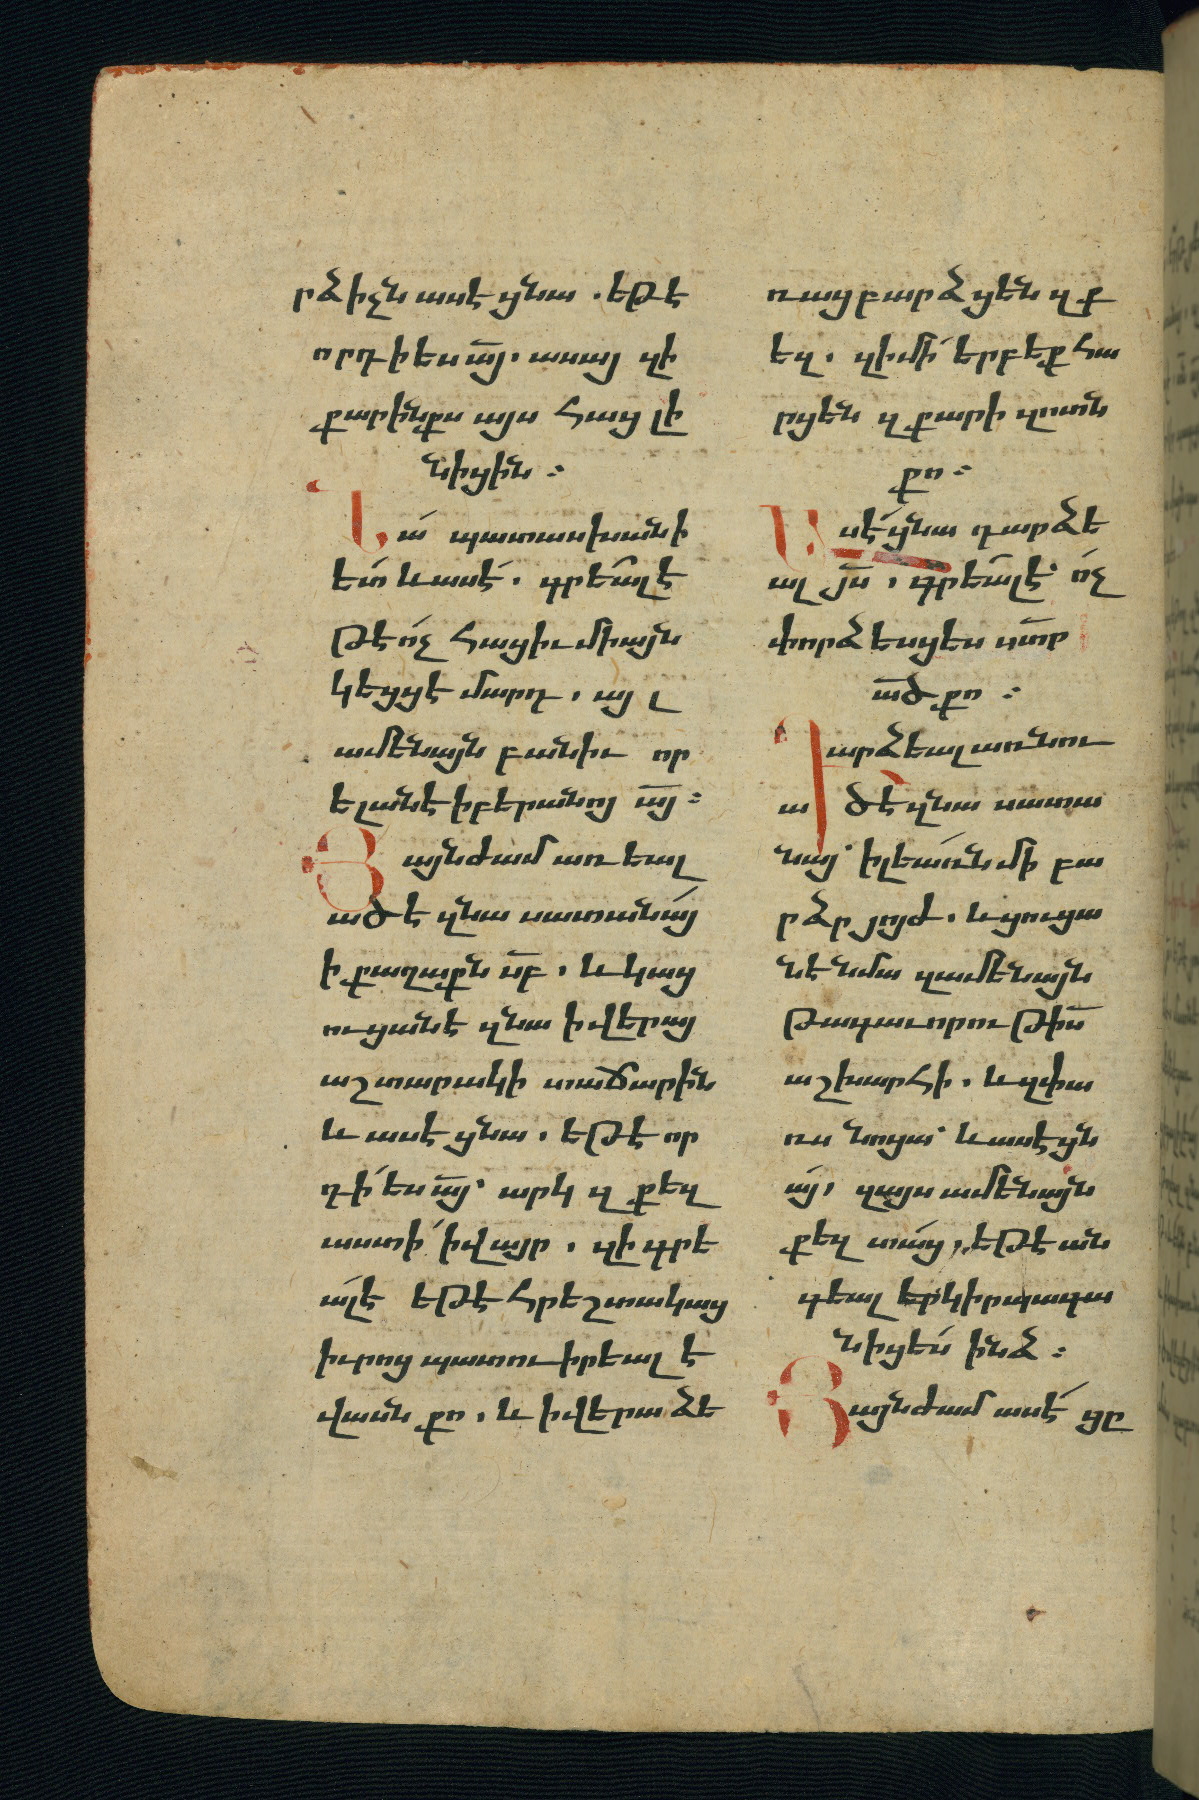 րձիչն ասէ ցնա . եթէ
որդի ես ա՟յ . ասա՛ զի
քարինքս այս հաց լի
նիցին :
Նա՛ պատասխանի
ետ և ասէ՛ . գրեա՛լ է
թէ ո՛չ հացիւ միայն
կեցցէ մարդ , այլ
ամենայն բանիւ որ
ելանէ ի բերանոյ ա՟յ :
Յայնժամ առեալ
ածէ զնա սատանա՛յ
ի քաղաքն ս՟բ . և կաց
ուցանէ զնա ի վերայ
աշտարակի տաճարին
և ասէ ցնա . եթէ որ
դի՛ ես ա՟յ՝ արկ զքեզ
աստի՛ ի վայր . զի գրե
ա՛լ է եթէ հրեշտակաց
իւրոց պատուիրեալ է
վասն քո . և ի վերա ձե
ռաց բարձցեն զք
եզ . զի մի՛ երբեք հա
րցեն զքարի զոտն
քո :
Ասէ՛ ցնա դարձե
ալ յ՟ս . գրեա՛լ է՝ ո՛չ
փորձեսցես զտ՟ր
ա՟ծ քո :
Դարձեալ առնու
ածէ զնա սատա
նայ՝ ի լեա՛ռն մի բա
րձր յոյժ . և ցուցա
նէ նմա զամենայն
թագաւորութի՟ս
աշխարհի . և զփա
ռս նոցա՝ և ասէ ցն
ա՛յ . զայս ամենայն
քեզ տա՛ց , եթէ ան
գեալ երկիրպագա
նիցես ինձ :
Յայնժամ ասէ՛ ցը